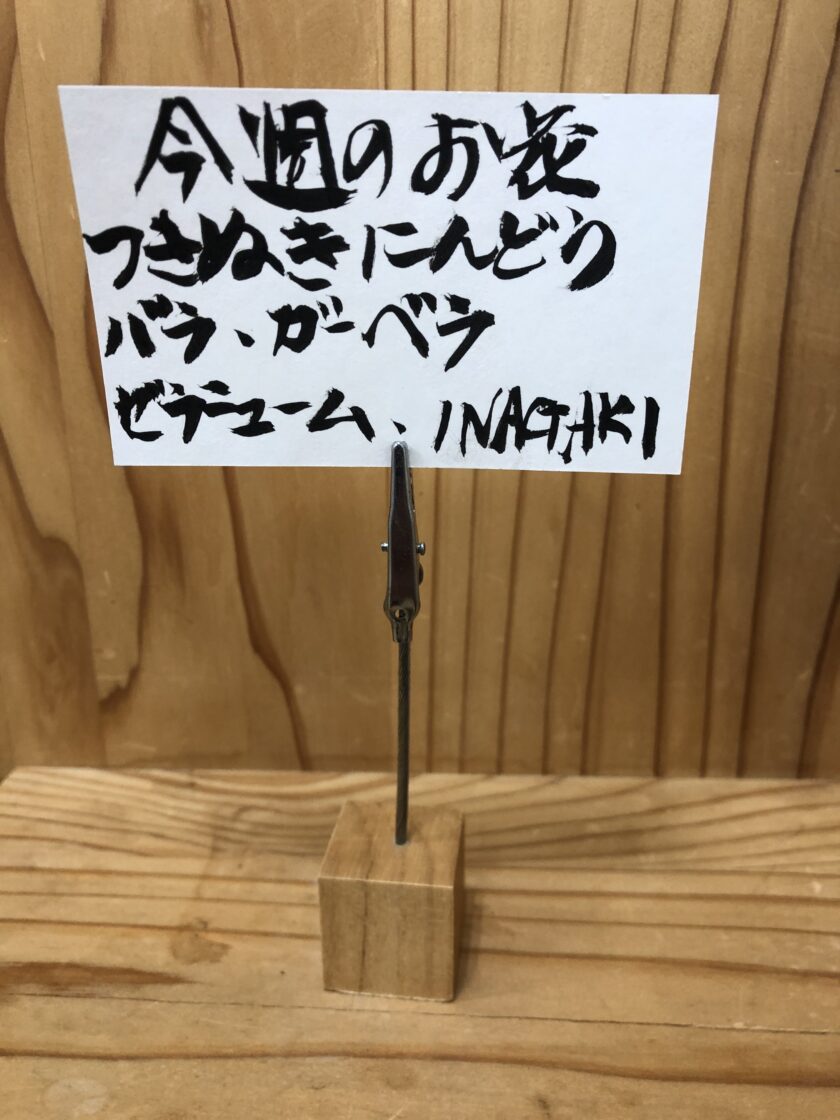 今週のお花
つきぬきにんどう
バラ、ガーベラ
ゼラニューム、INAGAKI